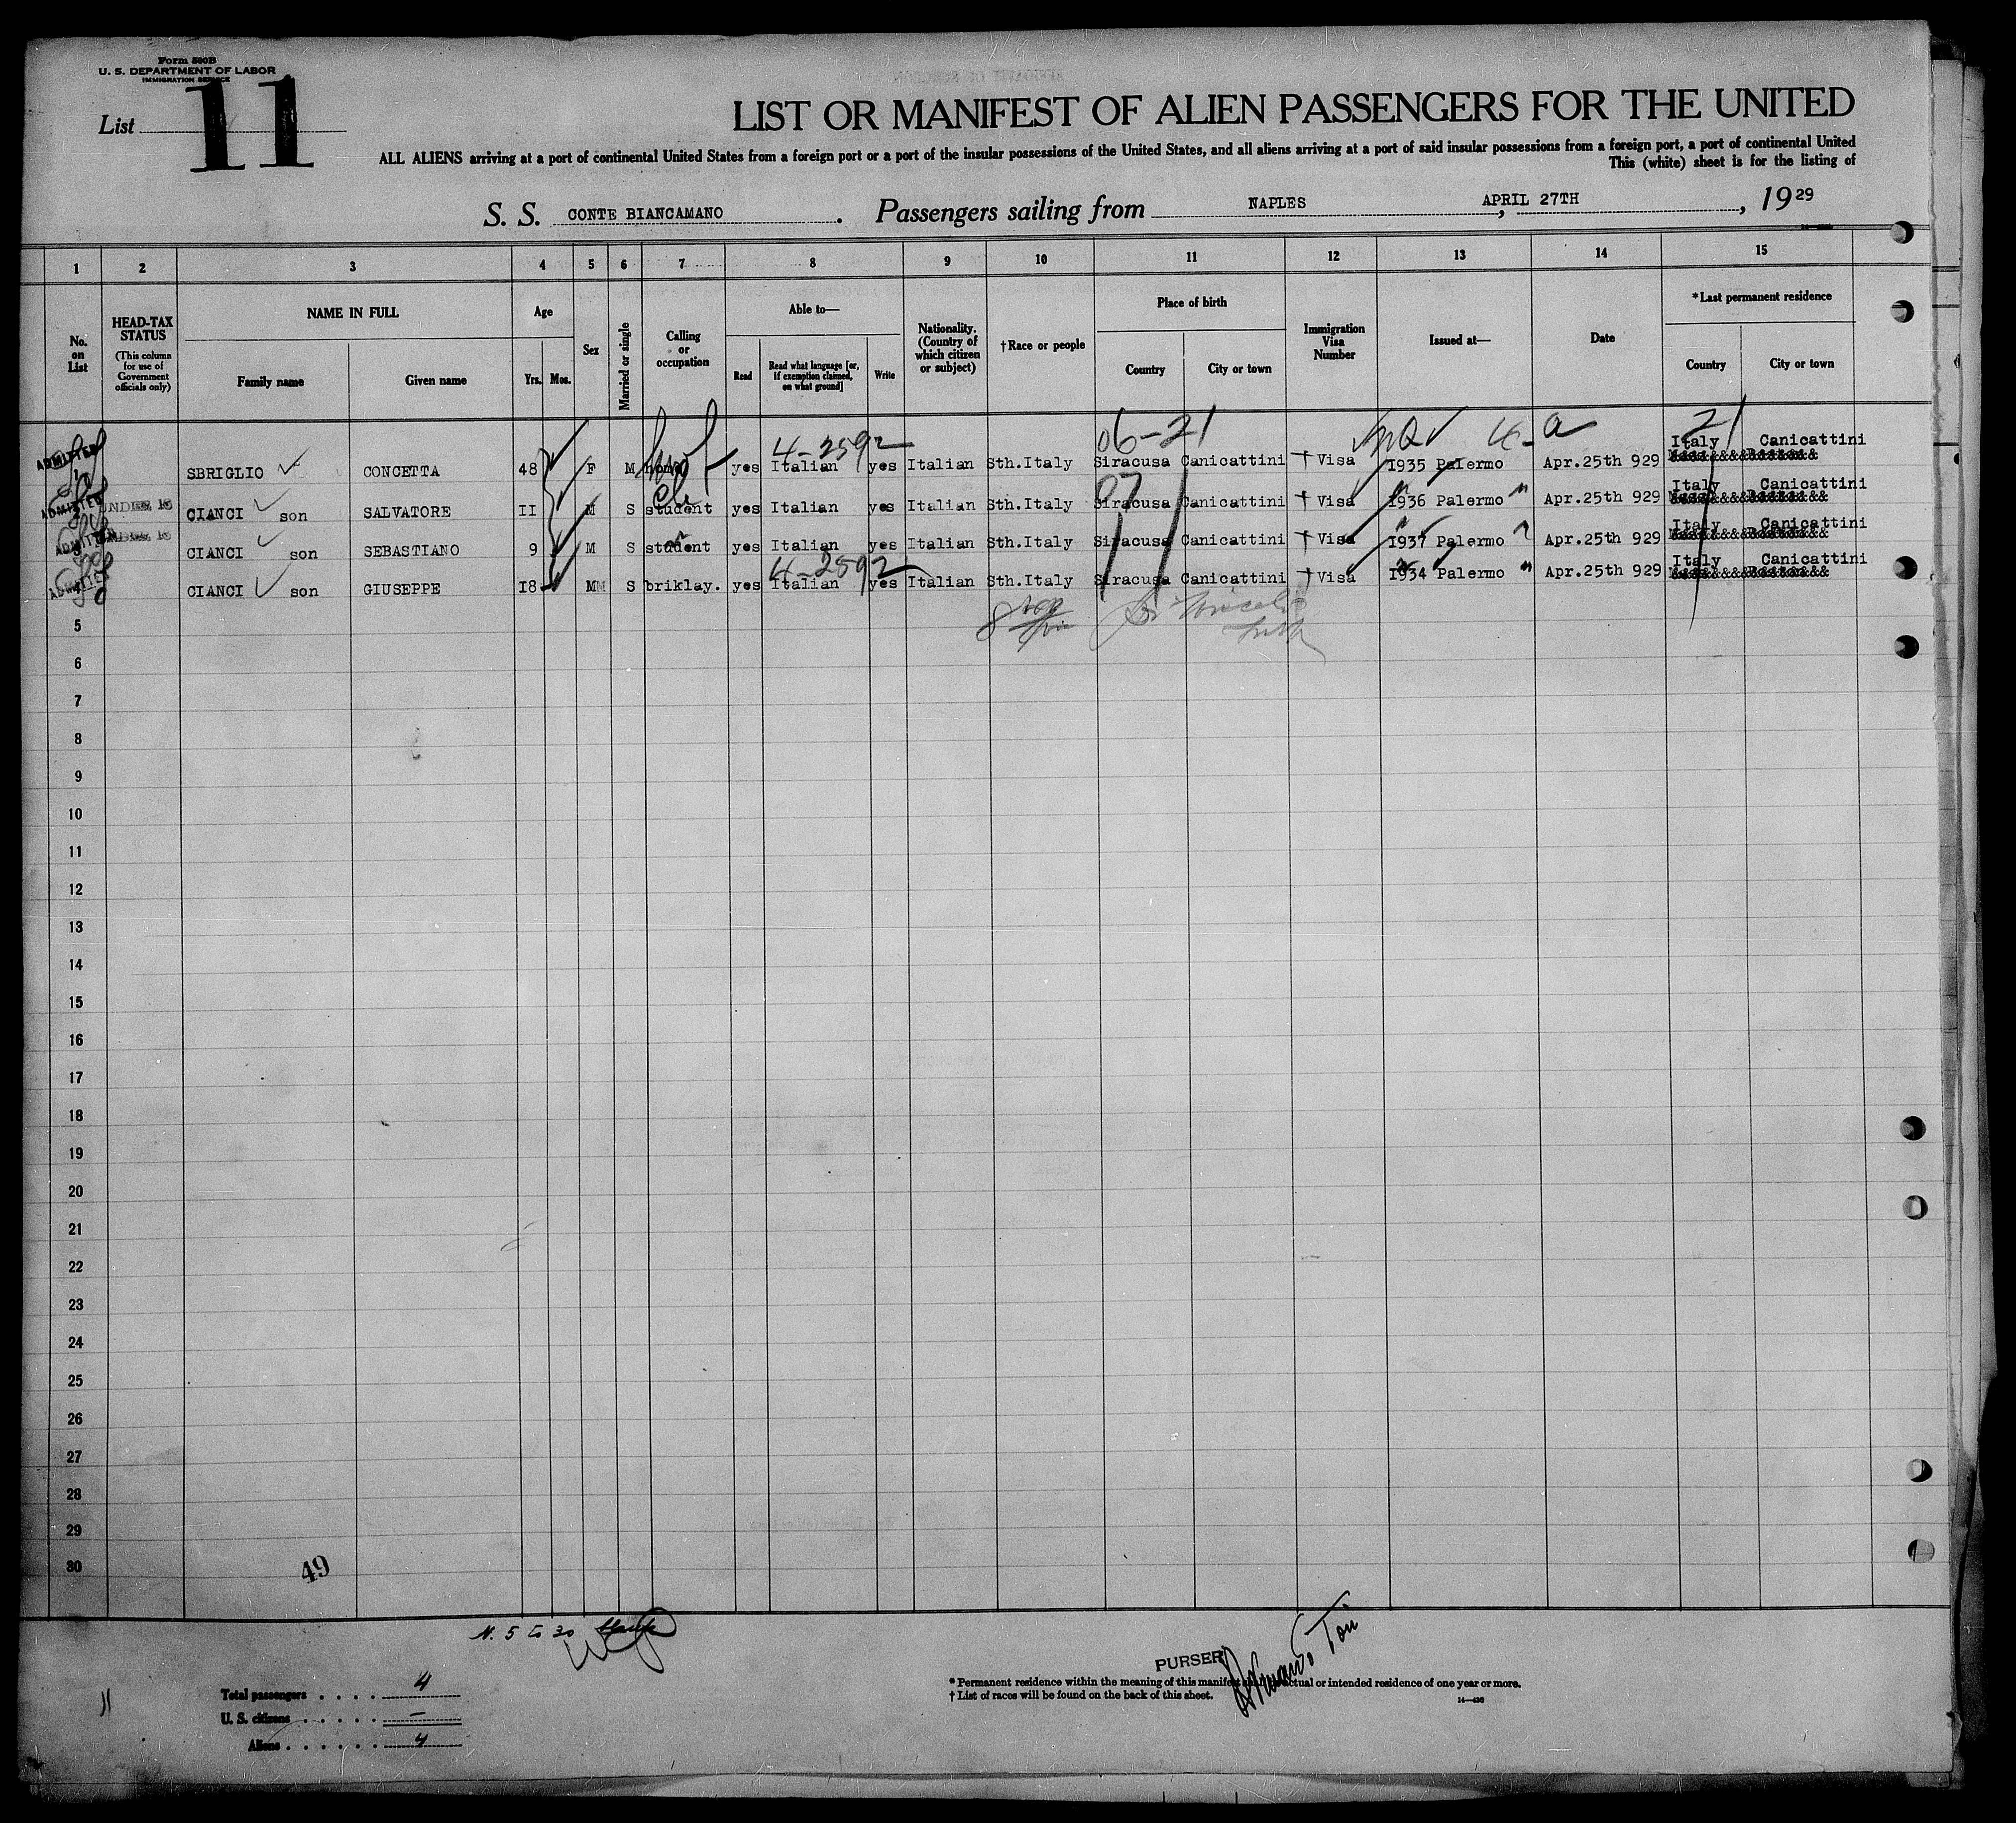 Form 500B
U. S. DEPARTMENT OF LABOR
IMMIGRATION SERVICE
List 11
LIST OR MANIFEST OF ALIEN PASSENGERS FOR THE UNITED
ALL ALIENS arriving at a port of continental United States from a foreign port or a port of the insular possessions of the United States, and all aliens arriving at a port of said insular possessions from a foreign port, a port of continental United
This (white) sheet is for the listing of
S. S. CONTE BIANCAMANO. Passengers sailing from NAPLES, APRIL 27TH, 1929
1 2 3 4 5 6 7 8 9 10 11 12 13 14 15
No. on List
HEAD-TAX STATUS
(This column for use of Government officials only)
NAME IN FULL
Family name Given name
Age
Yrs. Mos.
Sex
Married or single
Calling or occupation
Able to—
Read
Read what language [or, if exemption claimed, on what ground]
Write
Nationality. (Country of which citizen or subject)
†Race or people
Place of birth
Country City or town
Immigration Visa Number
Issued at—
Date
*Last permanent residence
Country City or town
4-2592 06-21 4-a 21
ADMITTED SBRIGLIO CONCETTA 48 F M home yes Italian yes Italian Sth.Italy Siracusa Canicattini † Visa I935 Palermo Apr.25th 929 Italy Canicattini
ADMITTED UNDER 16 CIANCI son SALVATORE II M S student yes Italian yes Italian Sth.Italy Siracusa Canicattini † Visa I936 Palermo " Apr.25th 929 Italy Canicattini
ADMITTED UNDER 16 CIANCI son SEBASTIANO 9 M S student yes Italian yes Italian Sth.Italy Siracusa Canicattini † Visa I937 Palermo Apr.25th 929 Italy Canicattini
4-2592
ADMITTED CIANCI son GIUSEPPE I8 M S briklay. yes Italian yes Italian Sth.Italy Siracusa Canicattini † Visa I934 Palermo " Apr.25th 929 Italy Canicattini
5
6
7
8
9
10
11
12
13
14
15
16
17
18
19
20
21
22
23
24
25
26
27
28
29
30
49
N. 5 to 30
PURSER
*Permanent residence within the meaning of this manifest shall be actual or intended residence of one year or more.
†List of races will be found on the back of this sheet.
14—430
Total passengers . . . . 4
U. S. citizens . . . . . . —
Aliens . . . . . . 4
11